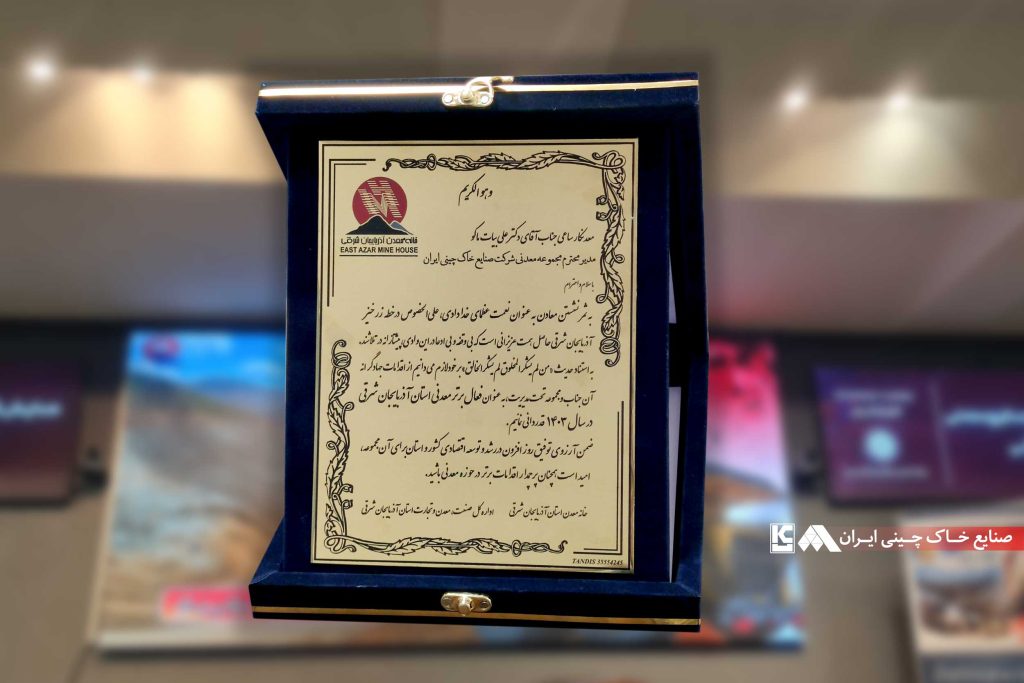 وهو الکریم
خانه معدن آذربایجان شرقی
EAST AZAR MINE HOUSE
معدنکار ساعی جناب آقای دکتر علی بیات ماکو
مدیر محترم مجموعه معدنی شرکت صنایع خاک چینی ایران
با سلام و احترام
به ثمر نشستن معادن به عنوان نعمت عظمای خدادادی، علی الخصوص در خطه زرخیز
آذربایجان شرقی حاصل همت عزیزانی است که بی وقفه و بی ادعا در این وادی پیشتازانه در تلاشند.
به استناد حدیث «من لم یشکر المخلوق لم یشکر الخالق» بر خود لازم می دانیم از اقدامات جهادگرانه
آن جناب و مجموعه تحت مدیریت، به عنوان فعال برتر معدنی استان آذربایجان شرقی
در سال ۱۴۰۳ قدردانی نمائیم.
ضمن آرزوی توفیق روز افزون در رشد و توسعه اقتصادی کشور و استان برای آن مجموعه،
امید است همچنان پرچمدار اقدامات برتر در حوزه معدنی باشید.
خانه معدن استان آذربایجان شرقی اداره کل صنعت، معدن و تجارت استان آذربایجان شرقی
TANDIS 35554245
صنایع خاک چینی ایران